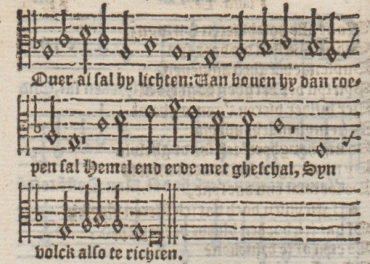 Ouer al sal hy lichten: Uan bouen hy dan roe-
pen sal Hemel end erde met gheschal, Syn
volck also te richten.